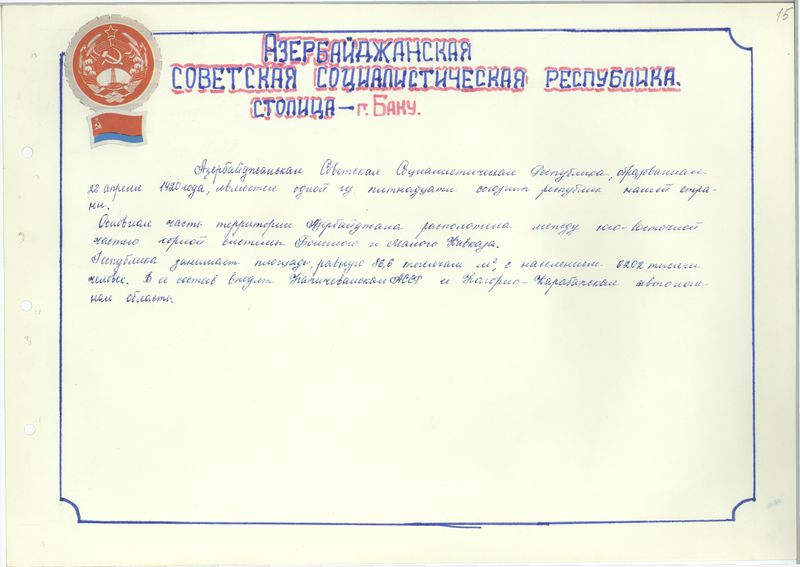 15
АЗЕРБАЙДЖАНСКАЯ
СОВЕТСКАЯ СОЦИАЛИСТИЧЕСКАЯ РЕСПУБЛИКА.
СТОЛИЦА – г. БАКУ.
Азербайджанская Советская Социалистическая Республика, образованная
28 апреля 1920 года, является одной из пятнадцати союзных республик нашей стра-
ны.
Основная часть территории Азербайджана расположена между юго-восточной
частью горной системы Большого и Малого Кавказа.
Республика занимает площадь, равную 86,6 тысячам м², с населением 6202 тысячи
человек. В её состав входят Нахичеванская АССР и Нагорно-Карабахская автоном-
ная область.